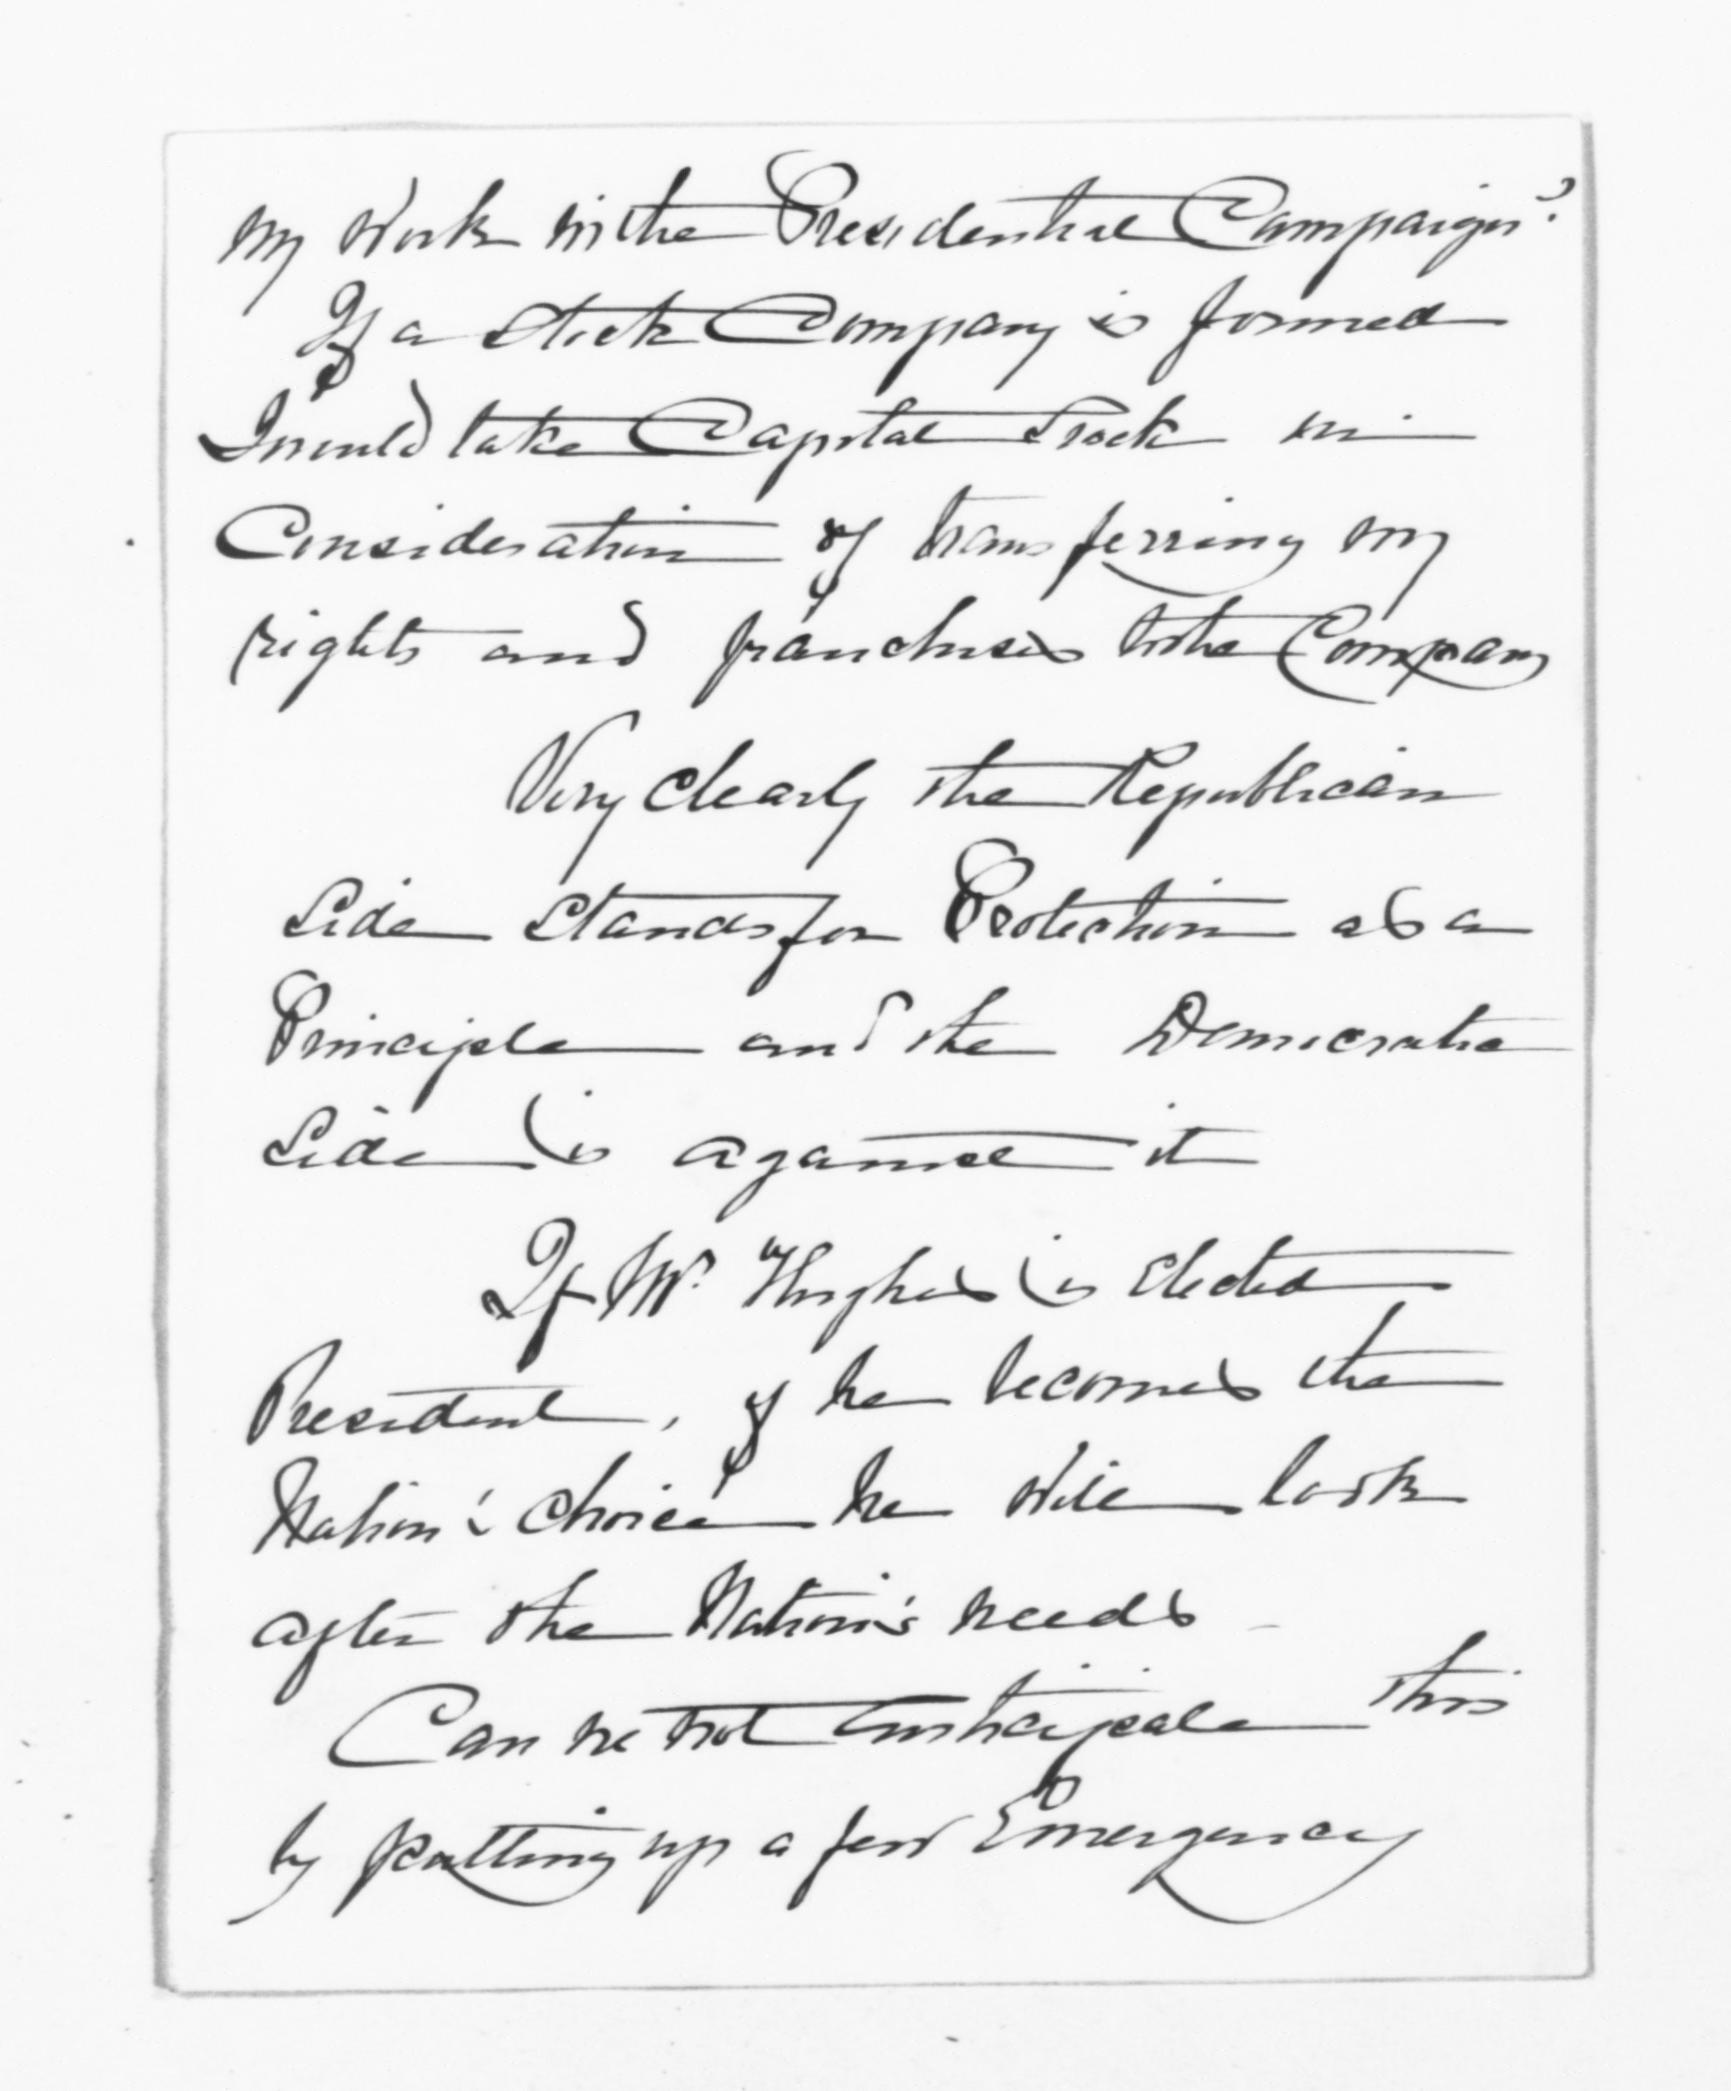 my work in the Presidential Campaign?
If a Stock Company is formed
I would take Capital Stock in
Consideration of transferring my
rights and franchises to the Company
Very clearly the Republican
Side Stands for Protection as a
Principle and the Democratic
Side is against it
If Mr. Hughes is Elected
President, if he becomes the
Nation's choice he will look
after the Nation's needs
Can he not Anticipate this
by putting up a few Emergency